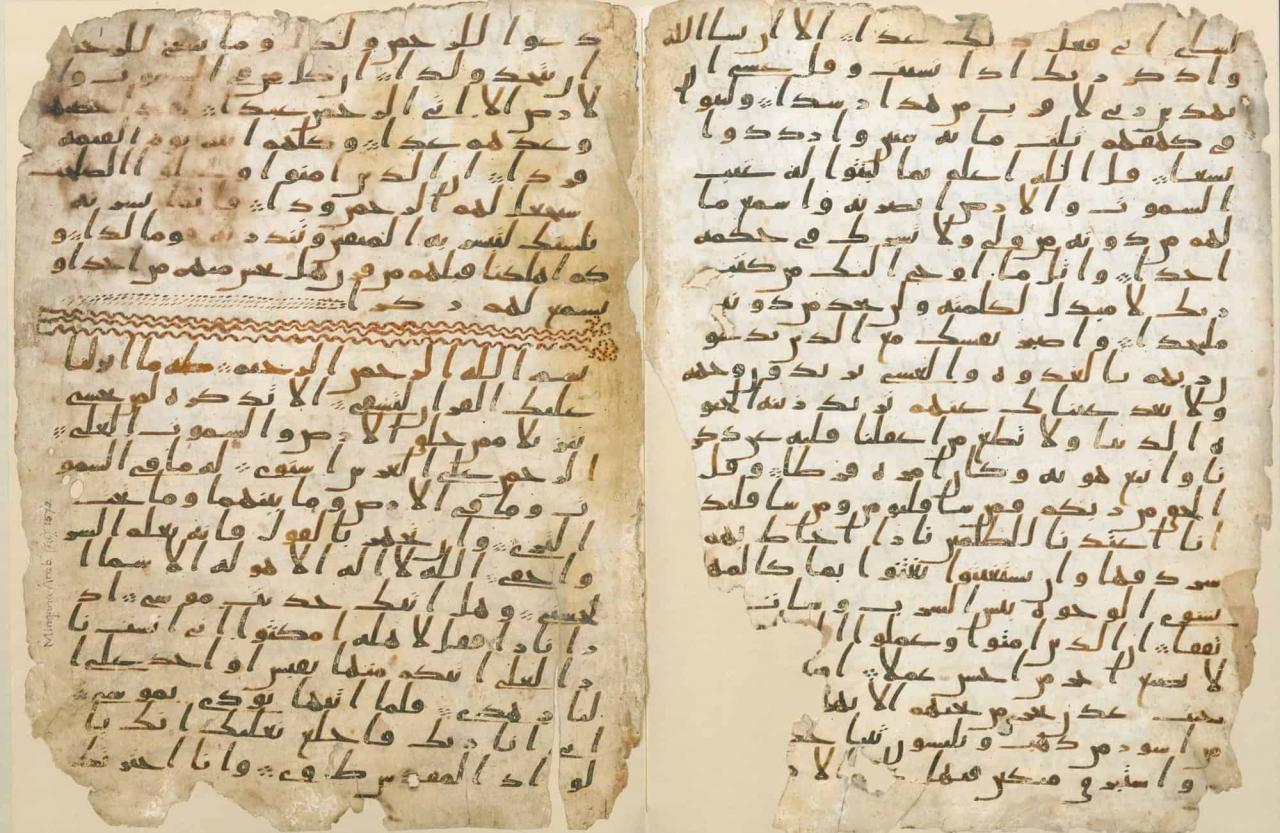 لشاي اني فعل ذلك غدا الا ان يشا الله
واذكر ربك اذا نسيت وقل عسى ان
يهدين ربي لاقرب من هذا رشدا ولبثوا
في كهفهم ثلث مايه سنين وازددوا
تسعا قل الله اعلم بما لبثوا له غيب
السموت والارض ابصر به واسمع ما
لهم من دونه من ولي ولا يشرك في حكمه
احدا واتل ما اوحي اليك من كتب
ربك لا مبدل لكلمته ولن تجد من دونه
ملتحدا واصبر نفسك مع الذين يدعو
ن ربهم بالغدوه والعشي يريدون وجهه
ولا تعد عيناك عنهم تريد زينه الحيو
ه الدنيا ولا تطع من اغفلنا قلبه عن ذكر
نا واتبع هويه وكان امره فرطا وقل
الحق من ربكم فمن شا فليومن ومن شا فليكفر
انا اعتدنا للظلمين نارا احاط بهم
سردقها وان يستغيثوا يغثوا بما كالمه
يشوي الوجوه بئس الشرب وسات
تفقا ان الذين امنوا وعملوا ا
لا نضيع اجر من احسن عملا او
جنت عدن تجري من تحتهم الانها
من اسور من ذهب ويلبسون ثيابا خ
واستبرق متكين فيها الار
دعوا للرحمن ولدا وما ينبغي للرحمن
ان يتخذ ولدا ان كل من في السموت وا
لارض الا اتي الرحمن عبدا لقد احصيهم
وعدهم عدا وكلهم اتيه يوم القيمه
فردا ان الذين امنوا وعملوا الصلحت
سيجعل لهم الرحمن ودا فانما يسرنه
بلسنك لتبشر به المتقين وتنذر به قوما لدا و
كم اهلكنا قبلهم من قرن هل تحس منهم من احد او
تسمع لهم ركزا
بسم الله الرحمن الرحيم طه ما انزلنا
عليك القران لتشقى الا تذكره لمن يخشى
تنزيلا ممن خلق الارض والسموت العلى
الرحمن على العرش استوى له ما في السمو
ت وما في الارض وما بينهما وما تحت
الثرى وان تجهر بالقول فانه يعلم السر
واخفى الله لا اله الا هو له الاسما ا
لحسنى وهل اتيك حديث موسى اذ
را نارا فقل لاهله امكثوا اني انست نا
را لعلي اتيكم منها بقبس او اجد على ا
لنار هدى فلما اتيها نودي يموسى
اني انا ربك فاخلع نعليك انك با
لواد المقدس طوى وانا اخترتك
Mingana Arab. (Isl.) 1572